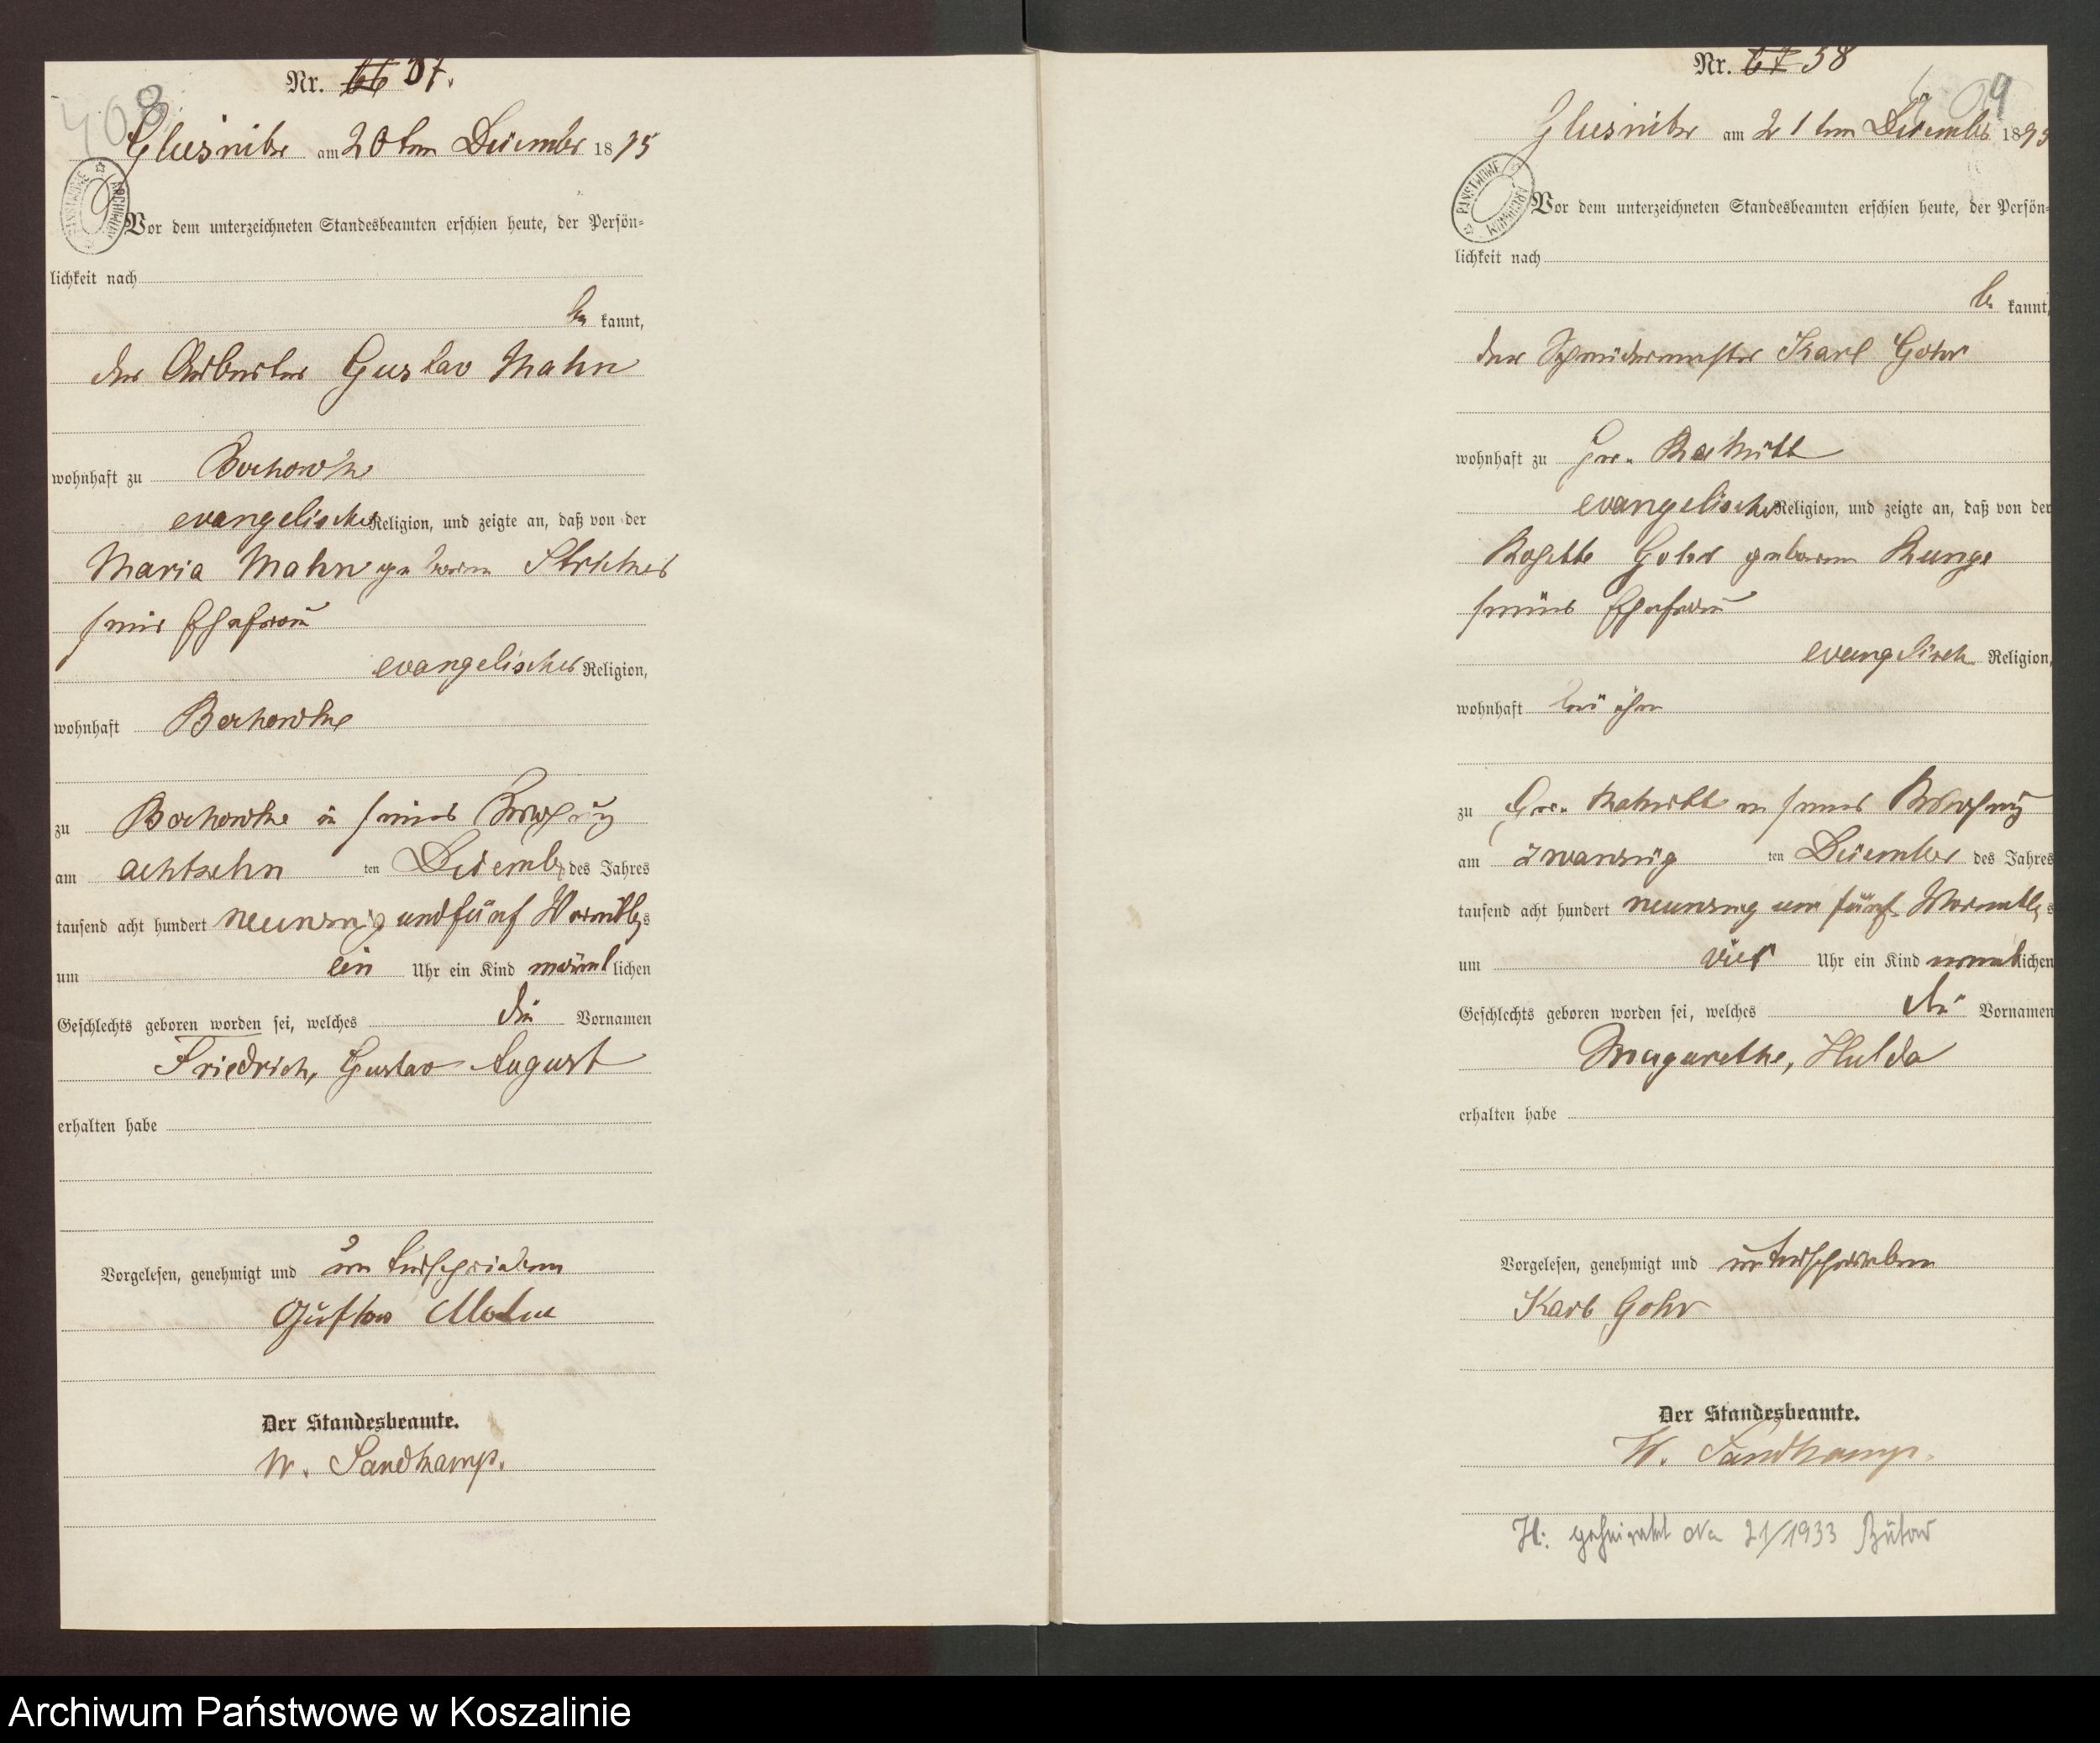 408
Nr. 66 57.
Glusnitz am 20ten Dezember 1895
ARCHIWUM PAŃSTWOWE
Vor dem unterzeichneten Standesbeamten erschien heute, der Persön=
lichkeit nach
be kannt,
der Arbeiter Gustav Mahn
wohnhaft zu Bochowke
evangelischer Religion, und zeigte an, daß von der
Maria Mahn geborene
seiner Ehefrau
evangelischer Religion,
wohnhaft Bochowke
zu Bochowke in seiner Wohnung
am achtzehn ten Dezember des Jahres
tausend acht hundert neunzig und fünf Vormittags
um ein Uhr ein Kind männlichen
Geschlechts geboren worden sei, welches die Vornamen
Friedrich, Gustav August
erhalten habe
Vorgelesen, genehmigt und unterschrieben
Gustav Mahn
Der Standesbeamte.
W. Sandkamp.
Nr. 67 58
9
Glusnitz am 21ten Dezember 1895
PAŃSTWOWE ARCHIWUM
Vor dem unterzeichneten Standesbeamten erschien heute, der Persön=
lichkeit nach
be kannt,
der Schneidermeister Karl Gohr
wohnhaft zu Gr. Rakitt
evangelischer Religion, und zeigte an, daß von der
Gohr geborene Runge
seiner Ehefrau
evangelisch Religion,
wohnhaft bei ihm
zu Gr. Rakitt in seiner Wohnung
am zwanzig ten Dezember des Jahres
tausend acht hundert neunzig und fünf Vormittags
um vier Uhr ein Kind weiblichen
Geschlechts geboren worden sei, welches die Vornamen
Margarethe, Hulda
erhalten habe
Vorgelesen, genehmigt und unterschrieben
Karl Gohr
Der Standesbeamte.
W. Sandkamp.
H: geheiratet No 21/1933 Bütow
Archiwum Państwowe w Koszalinie